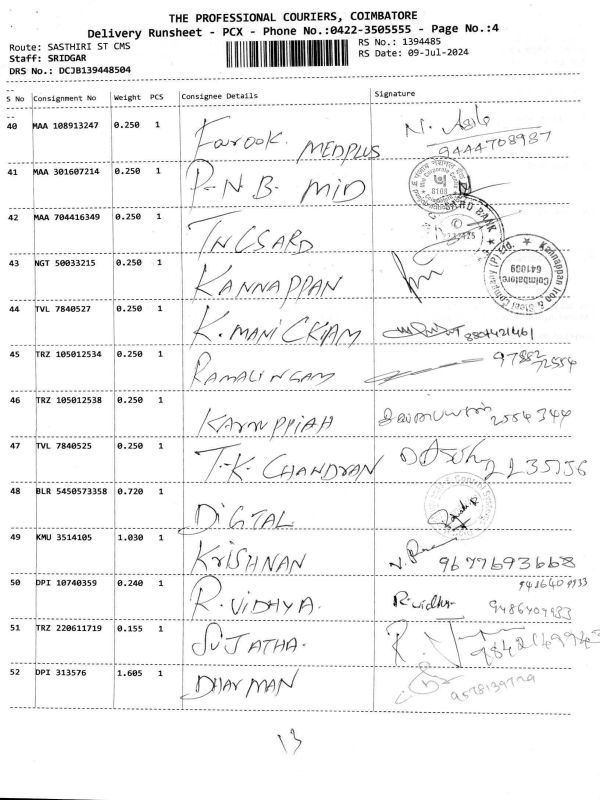 THE PROFESSIONAL COURIERS, COIMBATORE
Delivery Runsheet - PCX - Phone No.:0422-3505555 - Page No.:4
Route: SASTHIRI ST CMS RS No.: 1394485
Staff: SRIDGAR RS Date: 09-Jul-2024
DRS No.: DCJB139448504
S No Consignment No Weight PCS Consignee Details Signature
40 MAA 108913247 0.250 1 Farook. MEDPLUS 9444708987
41 MAA 301607214 0.250 1 P-N-B- MID
42 MAA 704416349 0.250 1 TNCSARD
43 NGT 50033215 0.250 1 KANNAPPAN Kannappan Iron & Steel Company (P) Ltd. Coimbatore 641009
44 TVL 7840527 0.250 1 K.MANICKAM
45 TRZ 105012534 0.250 1 RAMALINGAM
46 TRZ 105012538 0.250 1 KARUPPIAH 2554344
47 TVL 7840525 0.250 1 T.K. CHANDRAN
48 BLR 5450573358 0.720 1 DIGITAL
49 KMU 3514105 1.030 1 KRISHNAN 9677693668
50 DPI 10740359 0.240 1 R.VIDHYA. R.vidhya
51 TRZ 220611719 0.155 1 SUJATHA.
52 DPI 313576 1.605 1 DHARMAN 9578139729
13